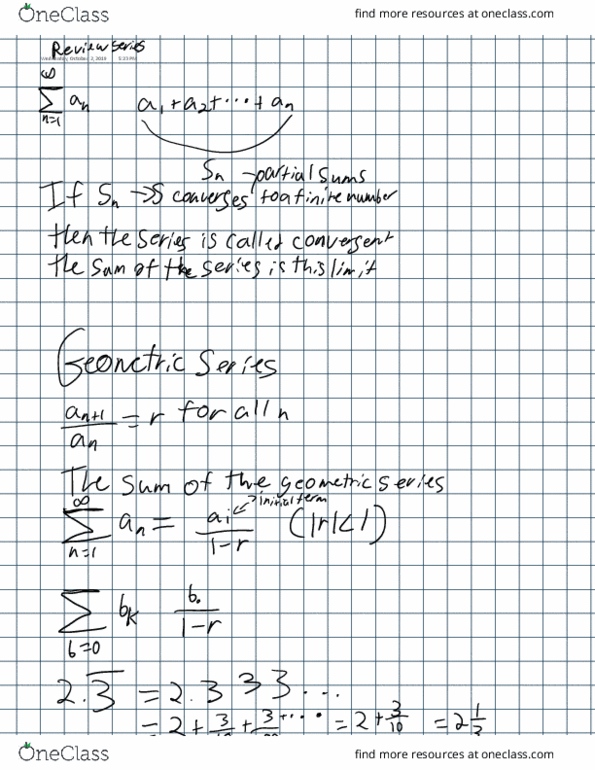 OneClass
find more resources at oneclass.com
Review series
Wednesday, October 2, 2019 5:23 PM
∞
∑ aₙ a₁+a₂+⋯+aₙ
n=1
Sₙ → partial sums
If Sₙ → S converges to a finite number
then the series is called convergent
the sum of the series is this limit
Geometric Series
aₙ₊₁/aₙ = r for all n
The sum of the geometric series
∞
∑ aₙ = a₁/(1-r) (|r|<1)
initial term
n=1
∑ bₖ b₀/(1-r)
b=0
2.3̅ = 2.333...
= 2 + 3/10 + 3/ ... = 2 + 3/10 = 2 1/3
OneClass
find more resources at oneclass.com